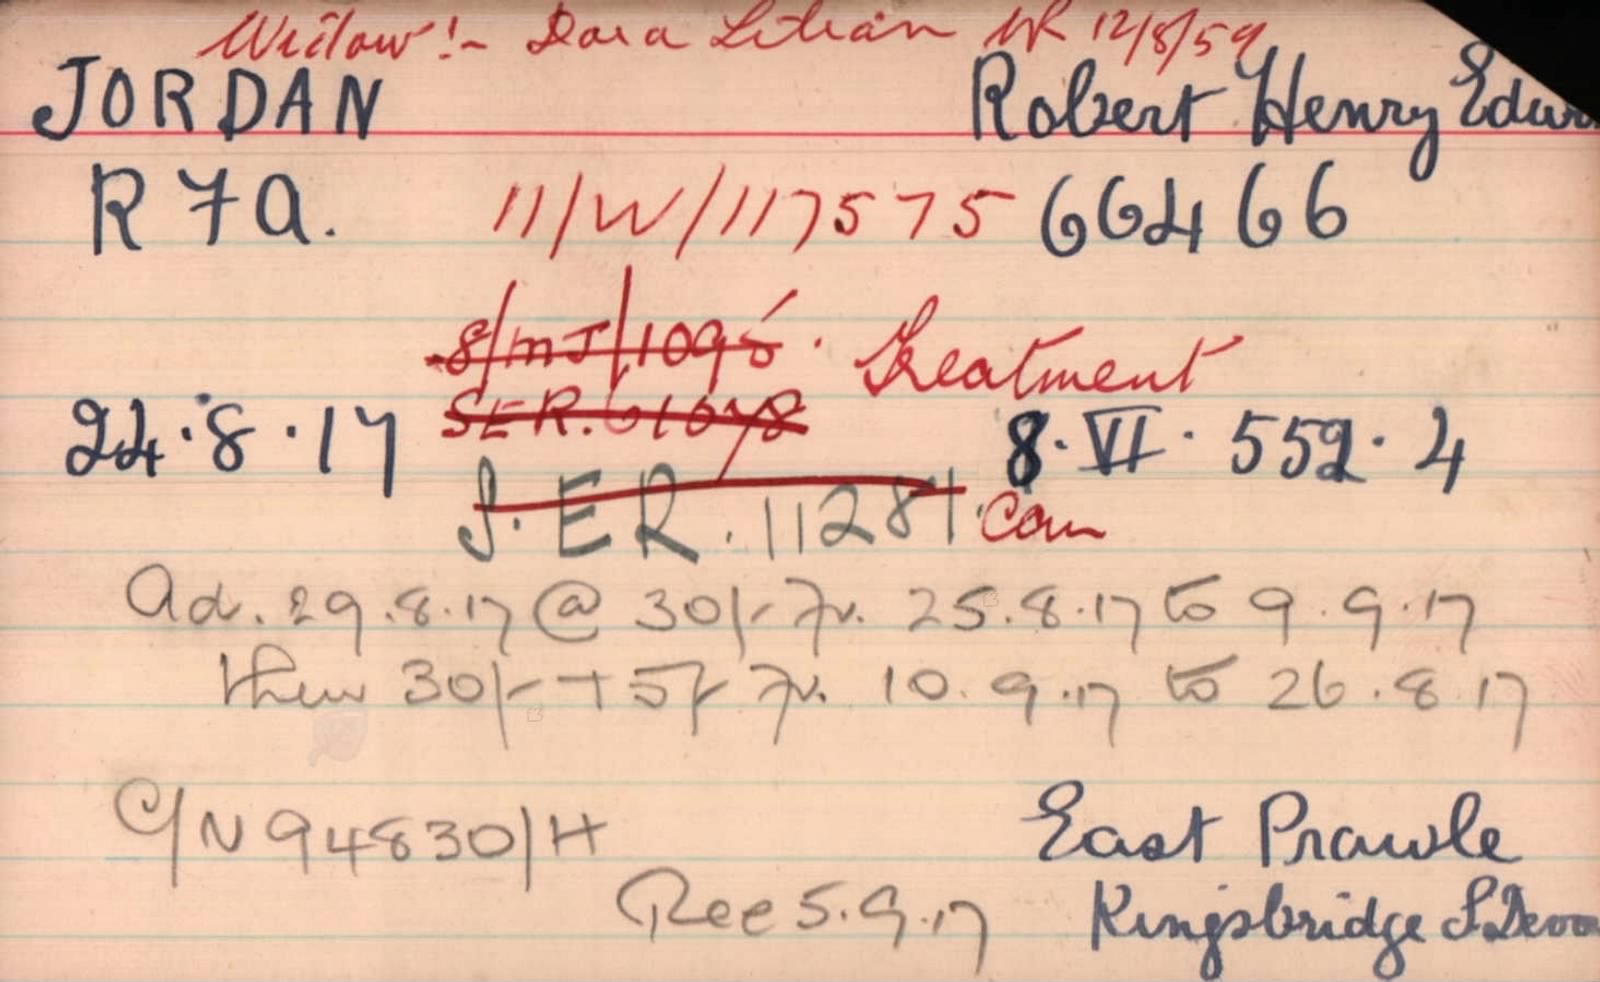 Widow!- Dora Lilian WR 12/8/59
JORDAN Robert Henry Edw
R 7a. 11/W/117575 66466
8/MJ/1095 . Treatment
24.8.17 SER. 61078 8.VI.552.4
S.ER.11281. Com
Ad. 29.8.17 @ 30/- fr. 25.8.17 to 9.9.17
then 30/- + 5/- fr. 10.9.17 to 26.8.17
C/N 94830/H East Prawle
Rec 5.9.17 Kingsbridge S.Devon